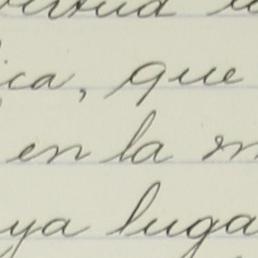 ica, que
en la m
ya luga